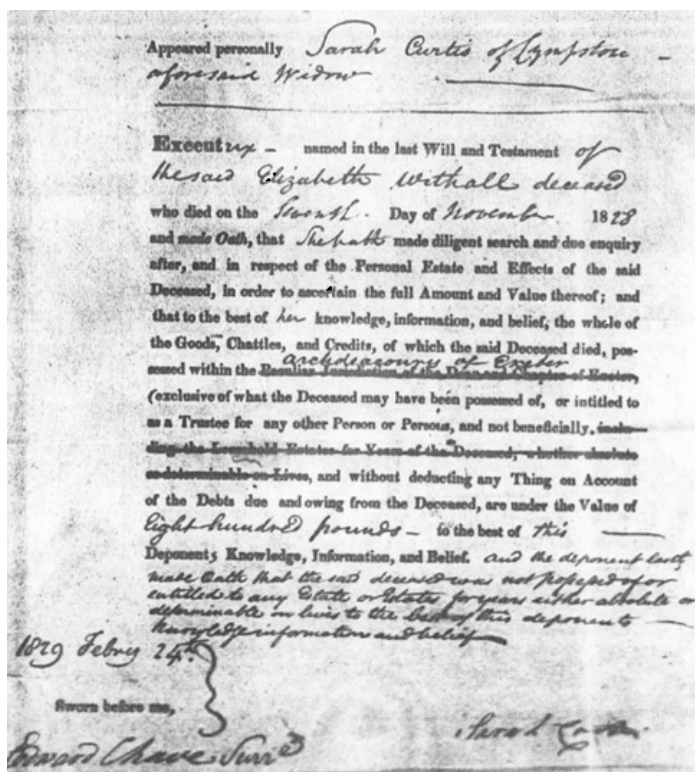 Appeared personally Sarah Curtis of Lympstone
aforesaid Widow
Executrix named in the last Will and Testament of
the said Elizabeth Withall deceased
who died on the Seventh Day of November 1828
and made Oath, that She hath made diligent search and due enquiry
after, and in respect of the Personal Estate and Effects of the said
Deceased, in order to ascertain the full Amount and Value thereof; and
that to the best of her knowledge, information, and belief, the whole of
the Goods, Chattles, and Credits, of which the said Deceased died, pos-
archdeaconry of Exeter
sessed within the Peculiar Jurisdiction of the Dean and Chapter of Exeter,
(exclusive of what the Deceased may have been possessed of, or intitled to
as a Trustee for any other Person or Persons, and not beneficially, inclu-
ding the Leasehold Estates for Years of the Deceased, whether absolute
or determinable on Lives, and without deducting any Thing on Account
of the Debts due and owing from the Deceased, are under the Value of
Eight hundred pounds – to the best of this
Deponents Knowledge, Information, and Belief. and the deponent lastly
made Oath that the said deceased was not possessed of or
entitled to any Estate or Estates for years either absolute or
determinable on lives to the best of this deponents
knowledge information and belief
1829 Febry 24th
Sworn before me,
Sarah Curtis
Edward Chave Surr